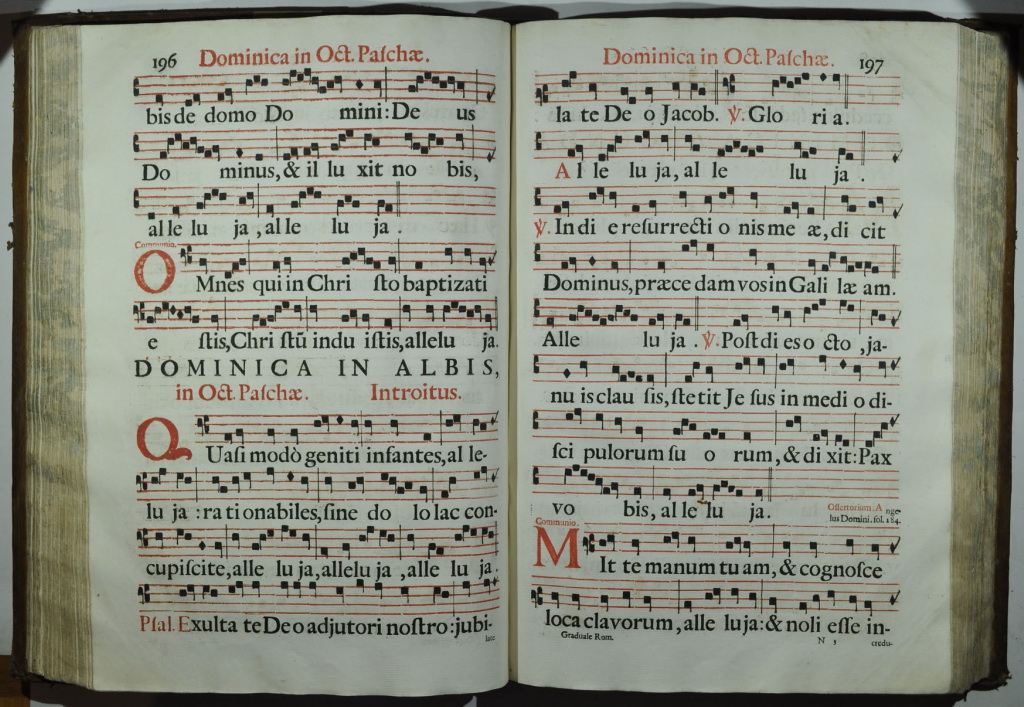 196 Dominica in Oct. Paſchæ.
bis de domo Do mini: De us
Do minus, & il lu xit no bis,
al le lu ja, al le lu ja.
Communio.
OMnes qui in Chri ſto baptizati
e ſtis, Chri ſtū indu iſtis, allelu ja.
DOMINICA IN ALBIS,
in Oct. Paſchæ. Introitus.
QUaſi modò geniti infantes, al le-
lu ja: ra ti onabiles, ſine do lo lac con-
cupiſcite, alle lu ja, allelu ja, alle lu ja.
Pſal. Exulta te Deo adjutori noſtro: jubi-
late
Dominica in Oct. Paſchæ. 197
la te De o Jacob. ℣. Glo ri a.
Al le lu ja, al le lu ja.
℣. In di e reſurrecti o nis me æ, di cit
Dominus, præce dam vos in Gali læ am.
Alle lu ja. ℣. Poſt di es o cto, ja-
nu is clau ſis, ſtetit Je ſus in medi o di-
ſci pulorum ſu o rum, & di xit: Pax
vo bis, al le lu ja.
Offertorium. Ange
lus Domini. fol. 184.
Communio.
MIt te manum tu am, & cognoſce
loca clavorum, alle lu ja: & noli eſſe in-
Graduale Rom. N 3 credu-